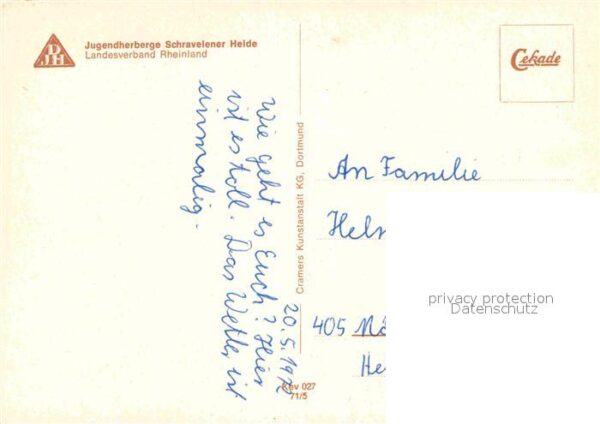 DJH
Jugendherberge Schravelener Heide
Landesverband Rheinland
Cekade
20.5.1972
Wie geht es Euch? Hier
ist es toll. Das Wetter ist
einmalig.
Cramers Kunstanstalt KG, Dortmund
Kev 027
71/5
An Familie
Helm
405 Mö
He
privacy protection
Datenschutz